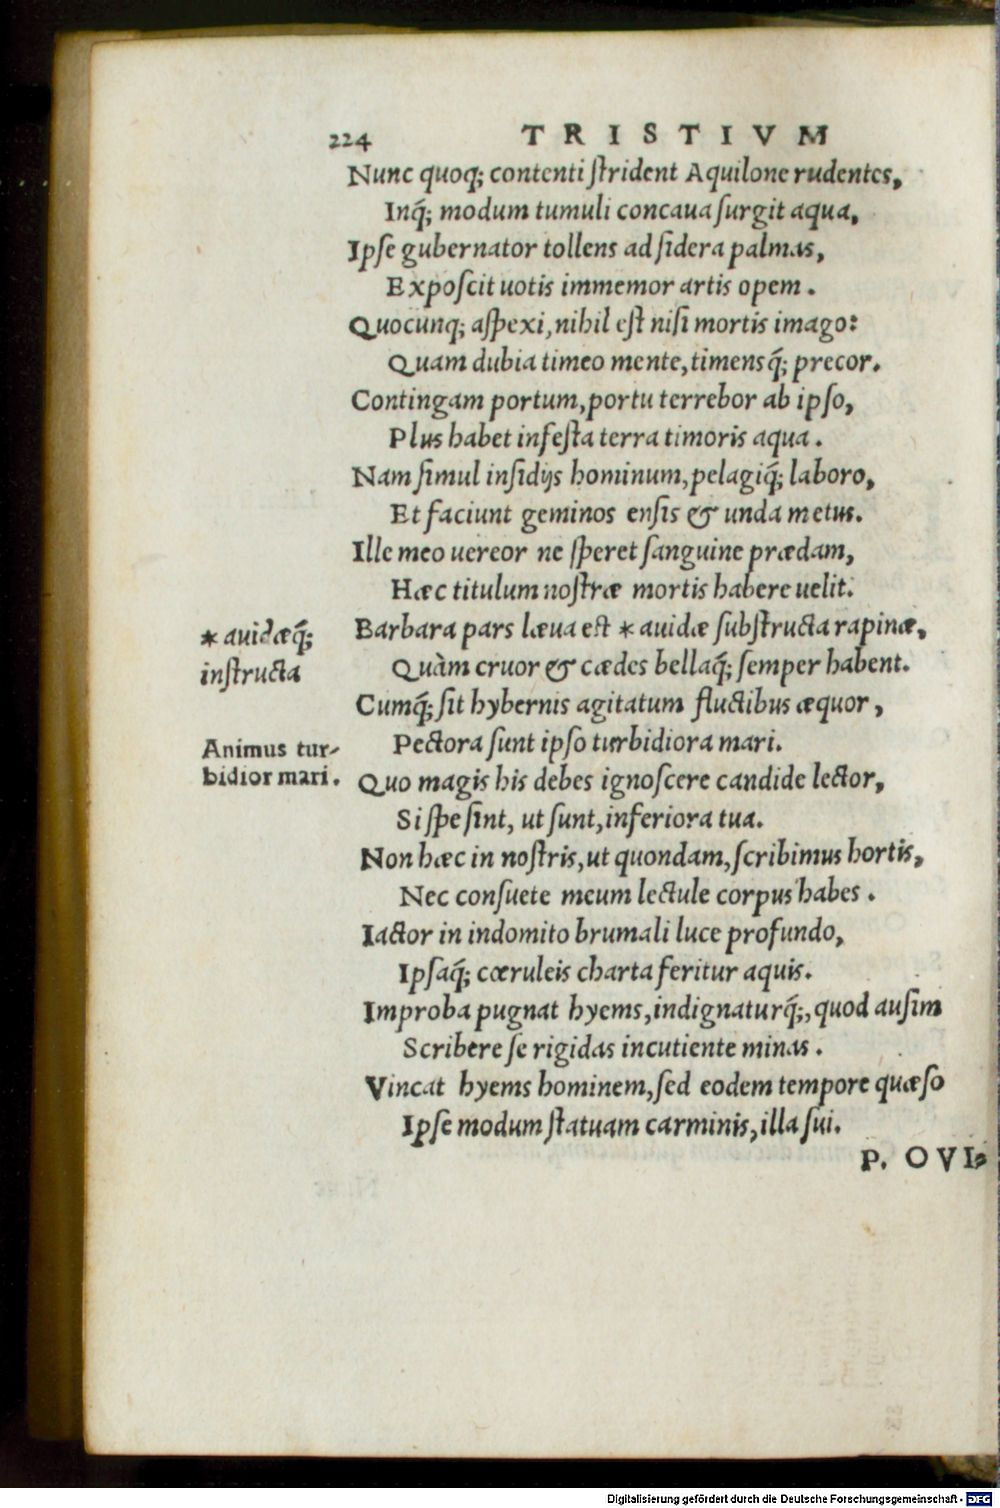 224 TRISTIVM
Nunc quoq; contenti ſtrident Aquilone rudentes,
Inq́; modum tumuli concaua ſurgit aqua,
Ipſe gubernator tollens ad ſidera palmas,
Expoſcit uotis immemor artis opem.
Quocunq; aſpexi, nihil eſt niſi mortis imago:
Quam dubia timeo mente, timensq́; precor.
Contingam portum, portu terrebor ab ipſo,
Plus habet infeſta terra timoris aqua.
Nam ſimul inſidijs hominum, pelagiq́; laboro,
Et faciunt geminos enſis & unda metus.
Ille meo uereor ne ſperet ſanguine prædam,
Hæc titulum noſtræ mortis habere uelit.
* auidæq́;
inſtructa
Barbara pars læua eſt * auidæ ſubſtructa rapinæ,
Quàm cruor & cædes bellaq́; ſemper habent.
Cumq́; ſit hybernis agitatum fluctibus æquor,
Animus tur-
bidior mari.
Pectora ſunt ipſo turbidiora mari.
Quo magis his debes ignoſcere candide lector,
Si ſpe ſint, ut ſunt, inferiora tua.
Non hæc in noſtris, ut quondam, ſcribimus hortis,
Nec conſuete meum lectule corpus habes.
Iactor in indomito brumali luce profundo,
Ipſaq́; cœruleis charta feritur aquis.
Improba pugnat hyems, indignaturq́;, quod auſim
Scribere ſe rigidas incutiente minas.
Vincat hyems hominem, ſed eodem tempore quæſo
Ipſe modum ſtatuam carminis, illa ſui.
P. OVI-
Digitalisierung gefördert durch die Deutsche Forschungsgemeinschaft - DFG